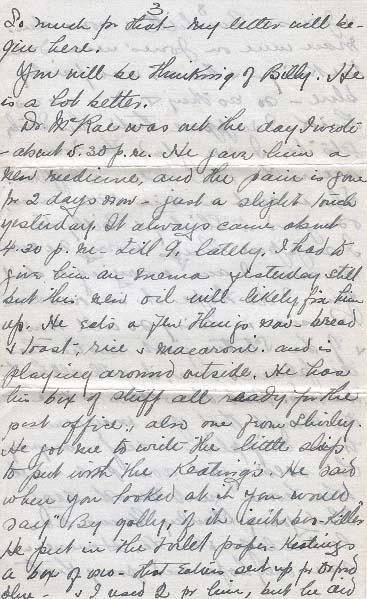 3
So much for that - my letter will be-
gin here.
You will be thinking of Billy. He
is a lot better.
Dr. McRae was out the day I wrote
- about 5.30 p.m. He gave him a
new medicine, and the pain is gone
for 2 days now - just a slight touch
yesterday. It always came about
4.30 p.m. - till 9, lately. I had to
give him an enema yesterday still
but this new oil will likely fix him
up. He eats a few things now - bread
& toast, rice & macaroni. and is
playing around outside. He has
his box of stuff all ready for the
post office, also one from Shirley.
He got me to write the little slip
to put with the Keatings. He said
when you looked at it you would
say "By golly, if it isn't
He put in the toilet paper - Keatings
a box of - that sent up for
blue - & I used 2 for him, but he did